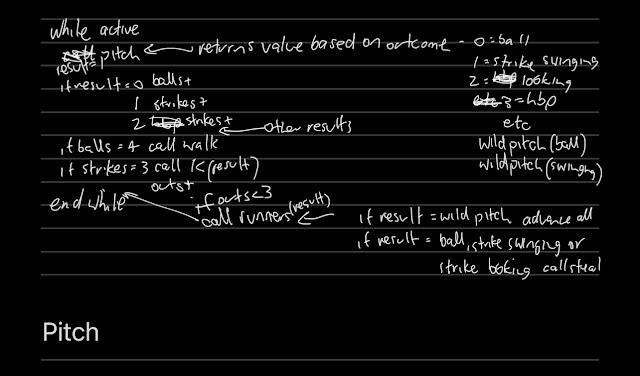 while active
result = pitch ← returns value based on outcome - 0 = ball
1 = strike swinging
if result = 0 balls+
2 = looking
1 strikes+
3 = hbp
2 strikes+ ← other results
etc
if balls = 4 call walk
wild pitch (ball)
if strikes = 3 call K (result)
wild pitch (swinging)
outs+
end while
if outs < 3
call runners (result) ← if result = wild pitch advance all
if result = ball, strike swinging or
strike looking call steal
Pitch